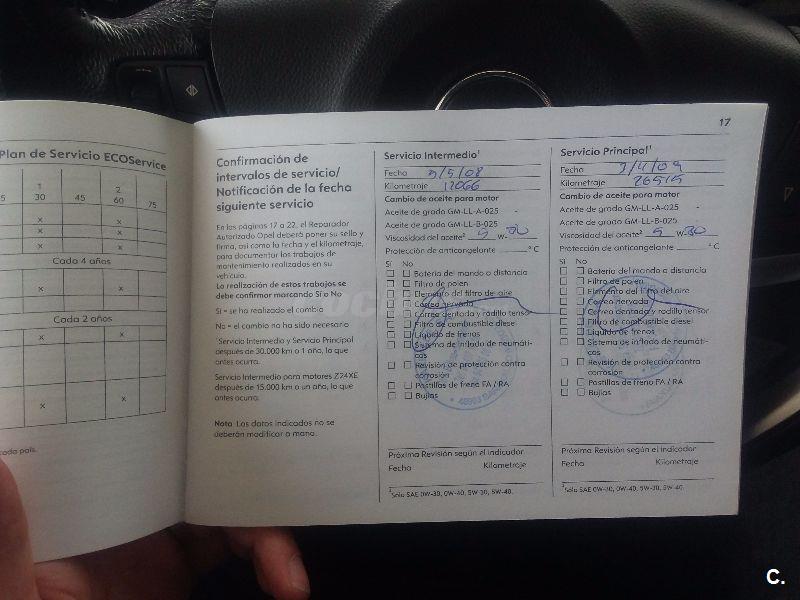 17
Plan de Servicio ECOService
5 1 30 45 2 60 75
x x
x x
x x
Cada 4 años
x x
Cada 2 años
x x
x x
cada país.
Confirmación de
intervalos de servicio/
Notificación de la fecha
siguiente servicio
En las páginas 17 a 22, el Reparador
Autorizado Opel deberá poner su sello y
firma, así como la fecha y el kilometraje,
para documentar los trabajos de
mantenimiento realizados en su
vehículo.
La realización de estos trabajos se
debe confirmar marcando Sí o No
Sí = se ha realizado el cambio
No = el cambio no ha sido necesario
1 Servicio Intermedio y Servicio Principal
después de 30.000 km o 1 año, lo que
antes ocurra.
Servicio Intermedio para motores Z24XE
después de 15.000 km o un año, lo que
antes ocurra.
Nota Los datos indicados no se
deberán modificar a mano.
Servicio Intermedio1
Fecha 5/5/08
Kilometraje 12066
Cambio de aceite para motor
Aceite de grado GM-LL-A-025 -
Aceite de grado GM-LL-B-025
Viscosidad del aceite2 5 W- 30
Protección de anticongelante ° C
Sí No
Batería del mando a distancia
Filtro de polen
Elemento del filtro de aire
Correa nervada
Correa dentada y rodillo tensor
Filtro de combustible diese
Líquido de frenos
Sistema de inflado de neumáti-
cos
Revisión de protección contra
corrosión
Pastillas de freno FA / RA
Bujías
Próxima Revisión según el indicador
Fecha Kilometraje
2 Sólo SAE 0W-30, 0W-40, 5W-30, 5W-40.
Servicio Principal1
Fecha 3/4/09
Kilometraje 26515
Cambio de aceite para motor
Aceite de grado GM-LL-A-025 -
Aceite de grado GM-LL-B-025
Viscosidad del aceite2 5 W- 30
Protección de anticongelante ° C
Sí No
Batería del mando a distancia
Filtro de polen
Elemento del filtro del aire
Correa nervada
Correa dentada y rodillo tensor
Filtro de combustible diesel
Líquido de frenos
Sistema de inflado de neumáti-
cos
Revisión de protección contra
corrosión
Pastillas de freno FA / RA
Bujías
Próxima Revisión según el indicador
Fecha Kilometraje
2 Sólo SAE 0W-30, 0W-40, 5W-30, 5W-40.
C.